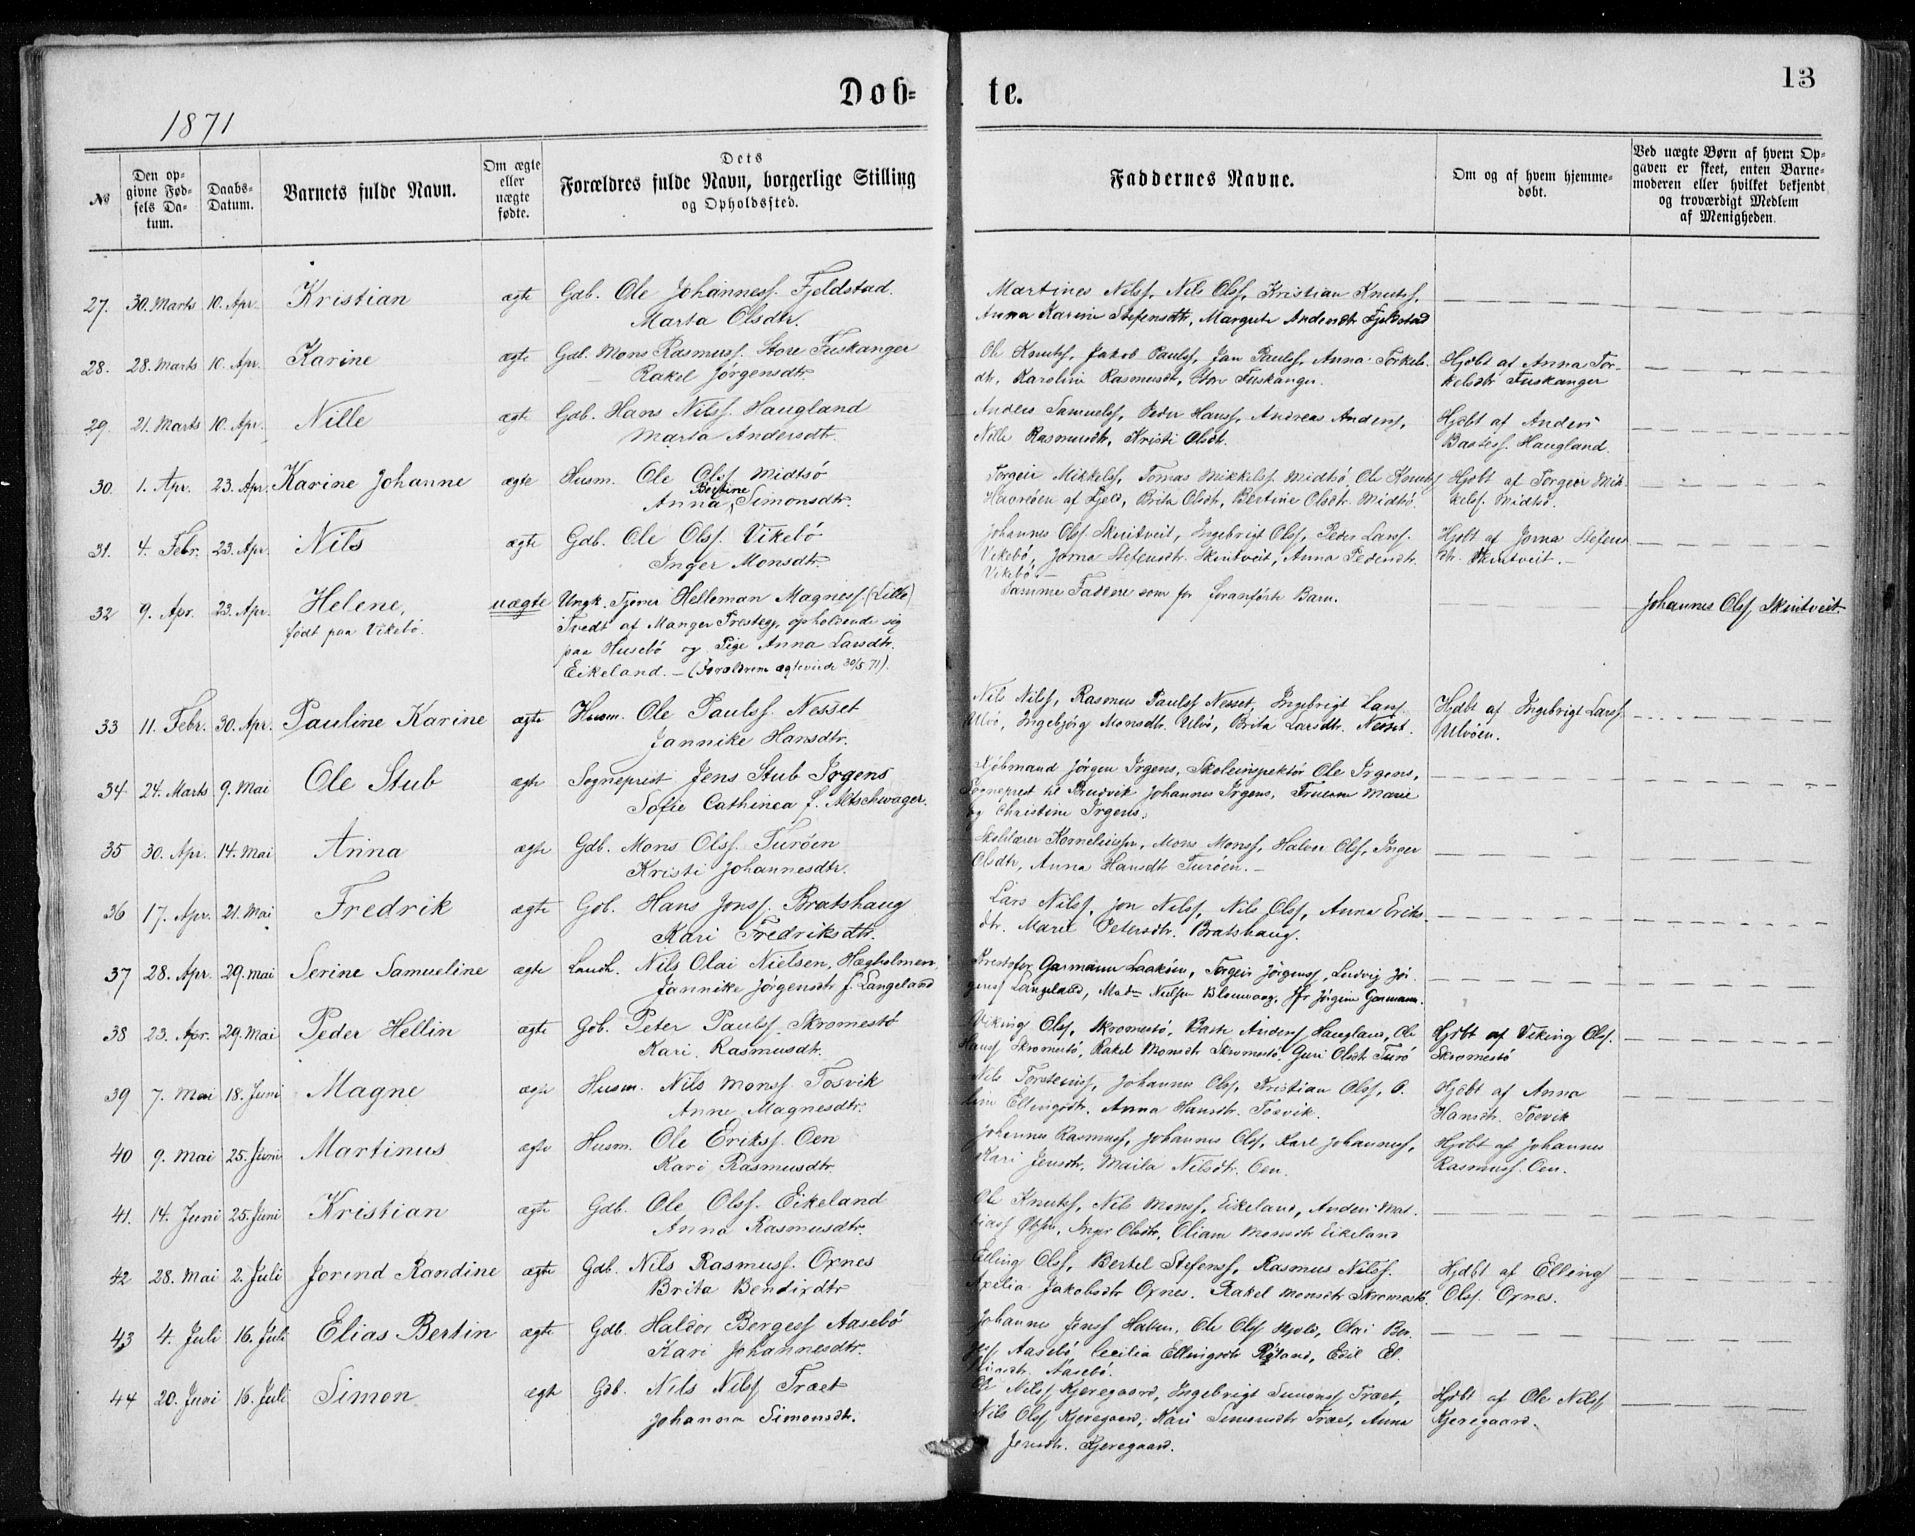 1871
Døb=
te.
13
No
Den op=
givne Fød=
sels Da=
tum.
Daabs=
Datum.
Barnets fulde Navn.
Om ægte
eller
uægte
fødte.
Dets
Forældres fulde Navn, borgerlige Stilling
og Opholdssted.
Faddernes Navne.
Om og af hvem hjemme=
døbt.
Ved uægte Børn af hvem Op=
gaven er skeet, enten Barne=
moderen eller hvilket bekjendt
og troværdigt Medlem
af Menigheden.
27. 30. Marts 10. Apr. Kristian ægte Gdb. Ole Johanness. Fjeldstad.
Marta Olsdtr.
Martines Nilss, Nils Olss, Kristian Knutss,
Anna Karine Stefensdtr, Margrete Andersdtr Fjeldstad
28. 28. Marts 10. Apr. Karine ægte Gdb. Mons Rasmuss. Store Tuskanger
Rakel Jørgensdtr.
Ole Knutss, Jakob Paulss, Jan Paulss, Anna Torkels
dtr, Karoline Rasmusdtr, Store Tuskanger.
Hjdbt af Anna Tor-
kelsdtr Tuskanger
29. 21. Marts 10. Apr. Nille ægte Gdb. Hans Nilss. Haugland
Marta Andersdtr.
Anders Samuelss, Peder Hanss, Andreas Anderss,
Nille Rasmusdtr, Kristi Olsdtr.
Hjdbt af Anders
Bastess. Haugland.
30. 1. Apr. 23. Apr. Karine Johanne ægte Husm. Ole Olss Midtsø
Anna Bertine Simonsdtr.
Torgeir Mikkelss, Tomas Mikkelss Midtsø, Ole Knutss
af Fjeld, Brita Olsdtr, Bertine Olsdtr. Midtsø.
Hjdbt af Torgeir Mik-
kelss. Midtsø.
31. 4. Febr. 23. Apr. Nils ægte Gdb. Ole Olss. Vikebø
Inger Monsdtr.
Johannes Olss. Skintveit, Ingebrigt Olss, Peder Larss.
Vikebø, Jorna Stefensdtr. Skintveit, Anna Pedersdtr.
Vikebø.
Hjdbt af Jorna Stefens
dtr. Skintveit.
32 9. Apr. 23. Apr. Helene, uægte Ungk. Tjener Helleman Magness. (Lille)
født paa Vikebø.
Tvedt af Manger Presteg, opholdende sig
paa Husebø og Pige Anna Larsdtr.
Eikeland. (Forældrene ægteviede 30/5 71).
Samme Faddere som for foranførte Barn.
Johannes Olss Skintveit.
33 11. Febr. 30. Apr. Pauline Karine ægte Husm. Ole Paulss. Nesset
Jannike Hansdtr.
Nils Nilss, Rasmus Paulss Nesset, Ingebrigt Larss.
Ulvø, Ingebjørg Monsdtr. Ulvø, Brita Larsdtr. Nesset.
Hjdbt af Ingebrigt Larss
Ulvøen.
34 24. Marts 9. Mai Ole Stub ægte Sogneprest Jens Stub Irgens
Sofie Cathinca f. Altschwager.
Kjøbmand Jørgen Irgens, Skoleinspektør Ole Irgens,
Sogneprest til Bruvik Johannes Irgens, Fruerne Marie
og Christine Irgens.
35 30. Apr. 14. Mai Anna ægte Gdb. Mons Olss. Turøen
Kristi Johannesdtr.
Skolelærer Korneliussen, Mons Monss, Halvor Olss, Inger
Olsdtr, Anna Hansdtr Turøen.
36 17. Apr. 21. Mai Fredrik ægte Gdb. Hans Jonss. Bratshaug
Kari Fredriksdtr.
Lars Nilss, Jon Nilss, Nils Olss, Anna Eriks-
dtr. Marie Petersdtr. Bratshaug.
37 28. Apr. 29. Mai Serine Samueline ægte Landh. Nils Olai Nielsen, Hægholmen,
Jannike Jørgensdtr f. Langeland
Kristofer Garmann Laaksen, Torgeir Jørgenss, Ludvig Jør-
genss Langeland, Madm Nielsen Blomvaag, Jfr Jørgine Garmann.
38 23. Apr. 29. Mai Peder Hellin ægte Gdb. Peter Paulss. Skromestø
Kari Rasmusdtr.
Viking Olss, Skromestø, Baste Anderss Haugland, Ole
Hanss Skromestø, Rakel Monsdtr Skromestø, Guri Olsdtr Turø
Hjdbt af Viking Olss.
Skromestø
39 7. Mai 18. Juni Magne ægte Husm. Nils Monss. Tosvik
Anne Magnesdtr.
Nils Torsteinss, Johannes Olss, Kristian Olss, O-
line Ellingsdtr. Anna Hansdtr. Tosvik.
Hjdbt af Anna
Hansdtr. Tosvik
40 9. Mai 25. Juni Martinus ægte Husm. Ole Erikss. Oen
Kari Rasmusdtr.
Johannes Rasmuss, Johannes Olss, Karl Johanness,
Kari Jensdtr, Maila Nilsdtr. Oen.
Hjdbt af Johannes
Rasmuss. Oen.
41. 14. Juni 25. Juni Kristian ægte Gdb. Ole Olss. Eikeland
Anna Rasmusdtr.
Ole Knutss, Nils Monss, Eikeland, Anders Mat-
hiass, Inger Olsdtr, Oliane Monsdtr Eikeland
42 28. Mai 2. Juli Jorind Randine ægte Gdb. Nils Rasmuss. Oxnes
Brita Bendixdtr
Elling Olss, Bertel Stefenss, Rasmus Nilss.
Axelia Jakobsdtr Oxnes. Rakel Monsdtr Skromestø.
Hjdbt af Elling
Olss. Oxnes.
43 4. Juli 16. Juli Elias Bertin ægte Gdb. Haldor Bergess Aasebø
Kari Johannesdtr.
Johannes Jenss Hatten, Ole Olss, Olai Ber-
gess Aasebø, Cecilia Ellingsdtr, Edil El-
Aasebø.
44 20. Juni 16. Juli Simon ægte Gdb. Nils Nilss Træet
Johanna Simonsdtr.
Ole Nilss Kjeregaard, Ingebrigt Simonss Træet,
Nils Olss Kjeregaard, Kari Simonsdtr Træet, Anna
Jensdtr. Kjeregaard.
Hjdbt af Ole Nilss
Kjeregaard.